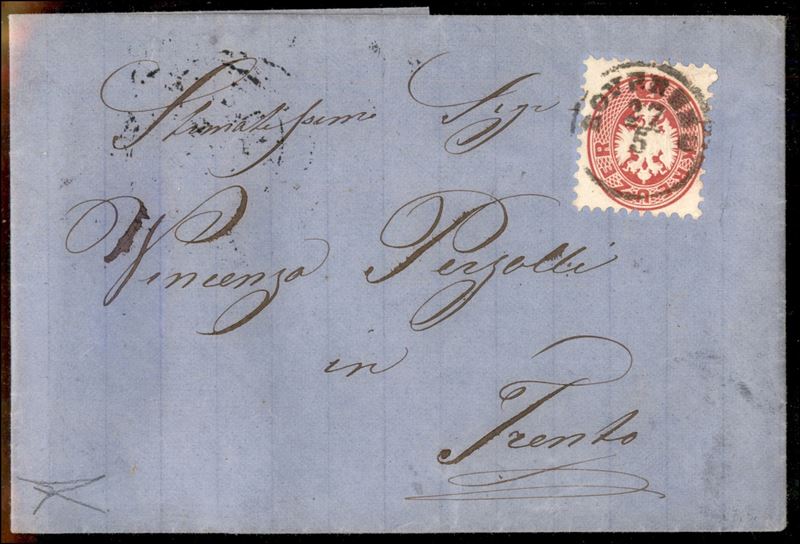 Stimatissimo Sigr
Vincenzo
in
Trento
ROVEREDO
27
5
KR